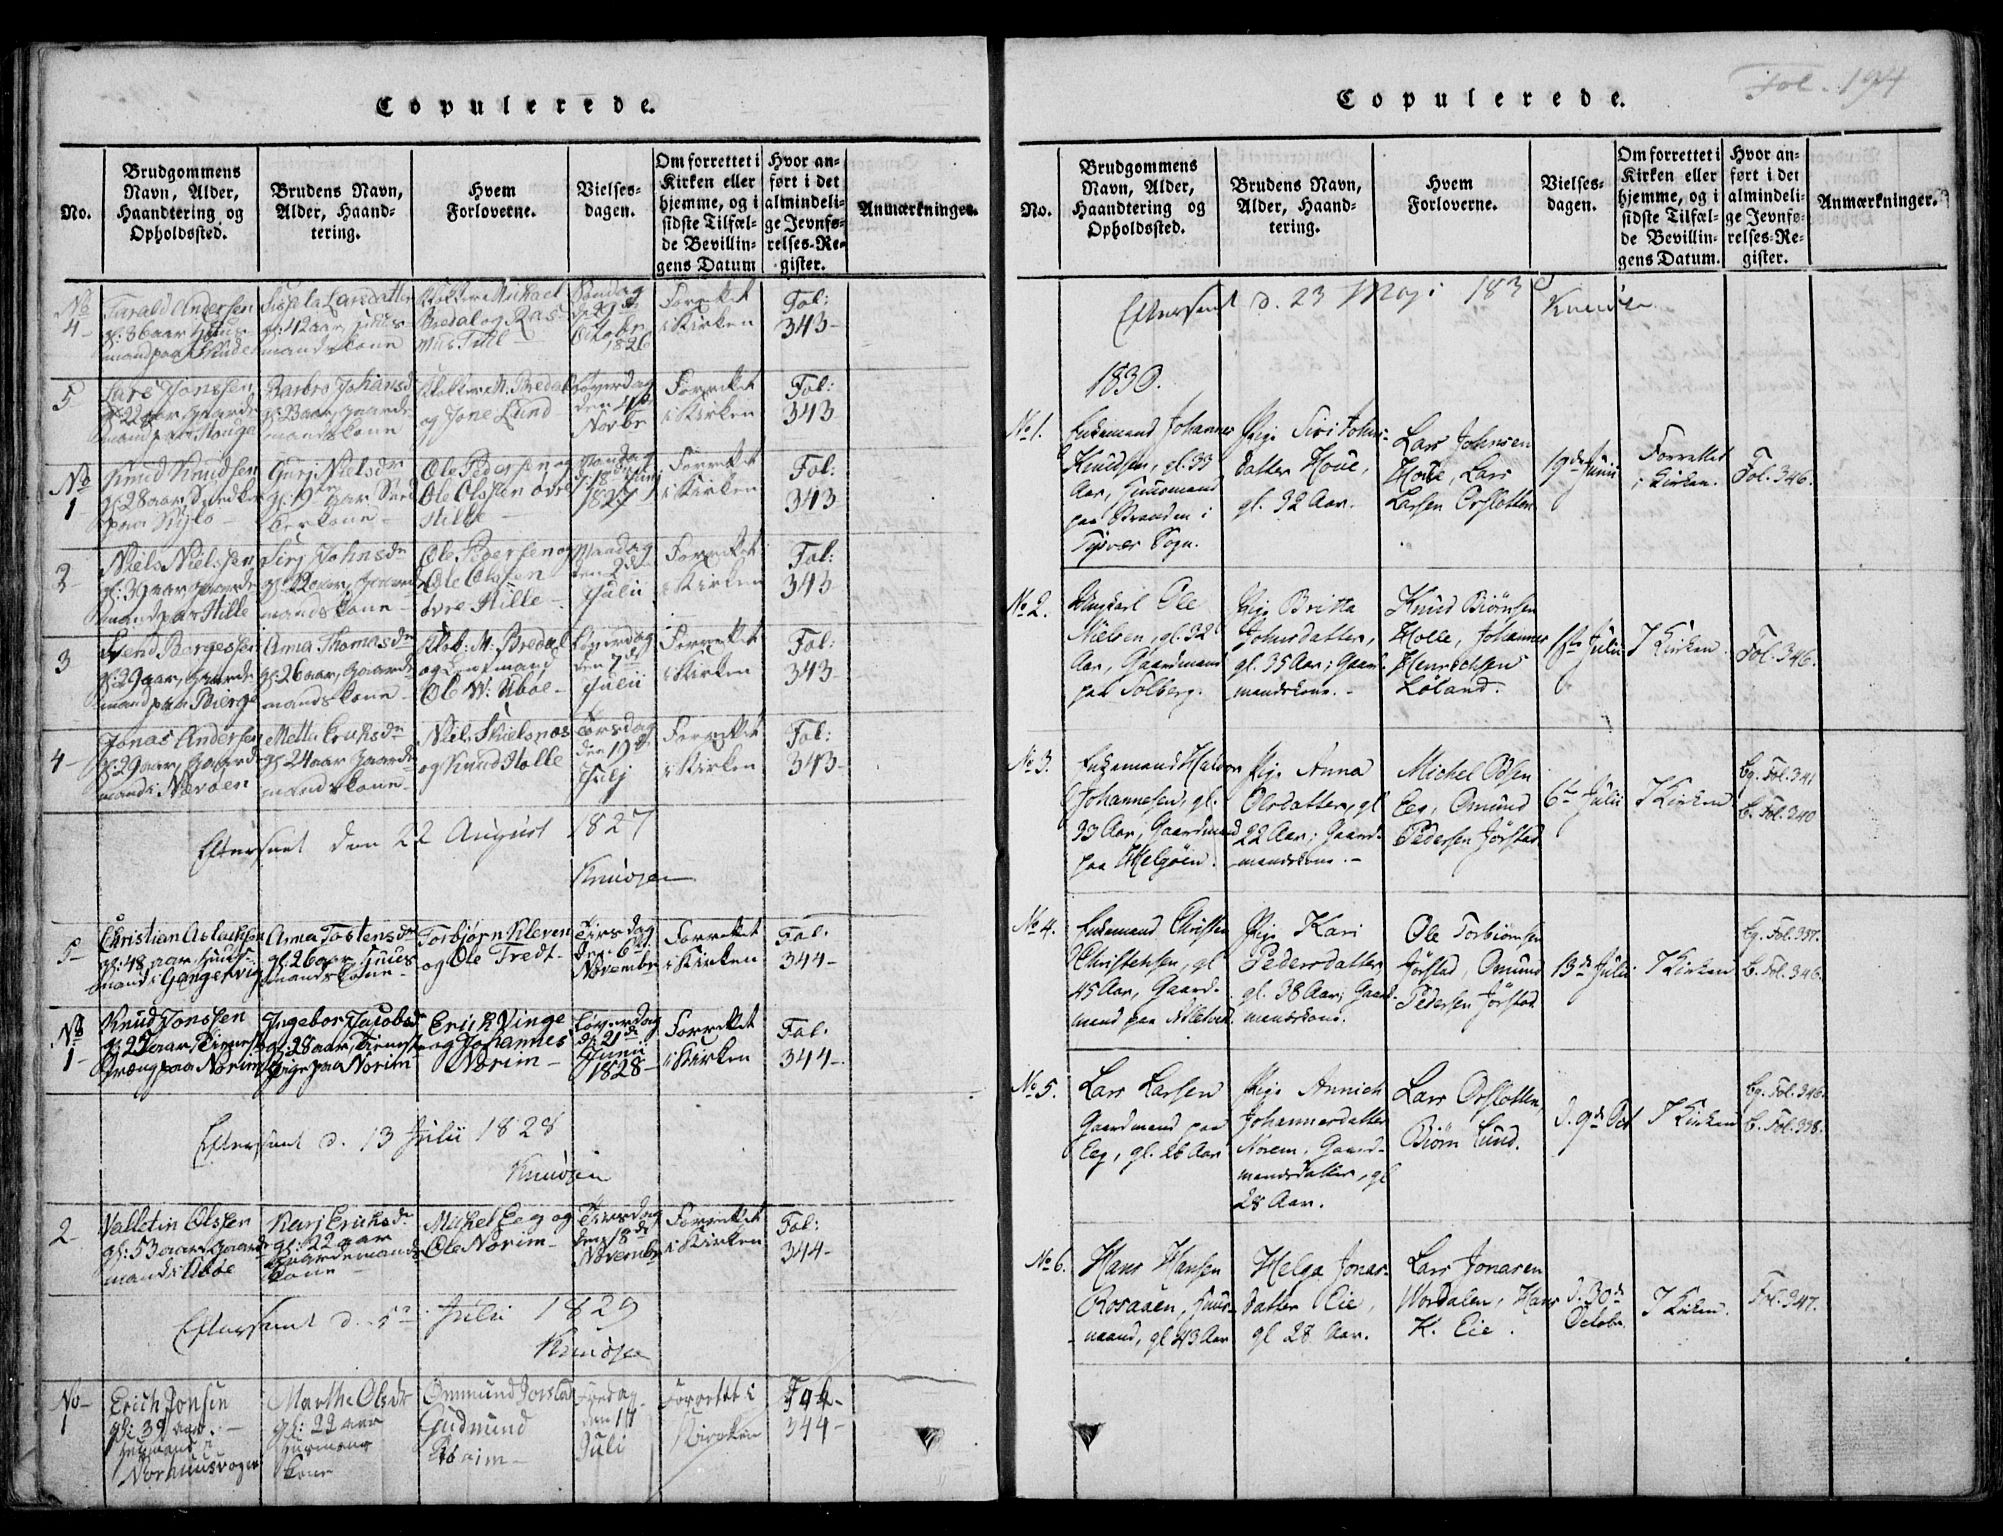 Copulerede.
No.
Brudgommens Navn, Alder, Haandtering og Opholdssted.
Brudens Navn, Alder, Haand-tering.
Hvem Forloverne.
Vielses-dagen.
Om forrettet i Kirken eller hjemme, og i sidste Tilfæl-de Bevillin-gens Datum
Hvor an-ført i det almindeli-ge Jevnfø-relses-Re-gister.
Anmærkninger.
No 4
Tarald Andersen gl: 36 aar Huus mand paa
Larsdatter gl: 42 aar, Huus mandskone
Klokker Michael Bredal og Ras mus
Søndag den 29de Octobr 1826
Forrettet i Kirken
Fol: 343
5
Lars Jonssen gl: 22 aar, Gaarde mand paa
Barbro Johansd gl: 23 aar, Gaarde mandskone
Klokker M. Bredal og Jone Lund
Løverdag den Novbr
Forrettet i Kirken
Fol: 343
No 1
Knud Knudsen gl: 28 aar, Snedker paa
Gurj Nielsdr gl: 19 aar Sned kerkone
Ole Pedersen og Ole Olssen øvre Hille
Mandag d: 18de Junij 1827
Forrettet i Kirken
Fol: 343
2
Niels Nielssen gl: 39 aar Gaarde mand paa Hille
Sirj Johnsdr gl: 22 aar, Gaarde mandskone
Ole Pedersen og Ole Olssen øvre Hille
Mandag den 2de Julii
Forrettet i Kirken
Fol: 343
3
Svend Børgessen gl: 29 aar, Gaarde mand paa Bierge
Anna Thomasdr gl: 26 aar, Gaarde mandskone
Klok. M. Bredal og Lensmand Ole W. Uboe
Løverdag den 7de Julii
Forrettet i Kirken
Fol: 343
4
Jonas Andersen gl: 29 aar, Gaarde mand i Nærøen
Mette Erichsdr gl: 24 aar Gaarde mandskone
Niels Skielsnæs og Knud Holle
Torsdag den 19de Julj
Forrettet i Kirken
Fol: 343
Eftersent den 22 August 1827
Knudsen
5
Christian Aslachsen gl: 48 aar Huus mand i Gangenvig
Anna Tostensdr gl: 26 aar, Huus mandskone
Torbjørn Kleven og Ole Tredt
Tirsdag den 6te Novembr
Forrettet i Kirken
Fol: 344
No 1
Knud Jonssen gl: 27 aar, Tieneste dræng paa Norim
Ingebor Jacobsd gl: 28 aar, Tieneste pige paa Norim
Erich Vinge og Johannes Norim
Løverdag d: 21de Junii 1828
Forrettet i Kirken
Fol: 344
Eftersent d. 13 Julii 1828
Knudsen
2
Valletin Olssen gl: 53 aar Gaarde mand i Uboe
Karj Erichsdr gl: 22 aar Gaardemands kone
Michel Eeg og Ole Norim
Tirsdag den 18de Novembr
Forrettet i Kirken
Fol: 344
Eftersent d. 5te Julii 1829
Knudsen
No 1
Erich Jonsen gl: 39 aar
Marthe Olsdr gl: 22 aar Huusmans kone
Ommund Jørstad Gudmund
Fredag den 17 Juli
Forrettet i Kirken
Fol: 344
Fol. 194
Copulerede.
No.
Brudgommens Navn, Alder, Haandtering og Opholdssted.
Brudens Navn, Alder, Haand-tering.
Hvem Forloverne.
Vielses-dagen.
Om forrettet i Kirken eller hjemme, og i sidste Tilfæl-de Bevillin-gens Datum.
Hvor an-ført i det almindeli-ge Jevnfø-relses-Re-gister.
Anmærkninger.
Eftersent d. 23 Maji 1830 Knudsen
1830.
No 1.
Enkemand Johannes Knudsen, gl. 33 Aar, Huusmand paa Stranden i Tysvær Sogn.
Pige Siri Johns-datter Houe, gl. 32 Aar.
Lars Johnsen Houe, Lars Larsen Orslotten
19de Junii
Forrettet i Kirken.
Fol. 346.
No 2.
Ungkarl Ole Nielsen, gl. 32 Aar, Gaardmand paa Solberg.
Pige Britta Johnsdatter, gl. 35 Aar; Gaard-mandskone.
Knud Biørnsen Holle, Johannes Henrichsen Løland.
1ste Julii
I Kirken.
Fol. 346.
No 3.
Enkemand Halvor Johannesen, gl. 33 Aar, Gaardmand paa Helgøen.
Pige Anna Olsdatter, gl 22 Aar; Gaard-mandskone.
Michel Odsen Eeg, Omund Pedersen Jørstad
6te Julii
I Kirken
bg. Fol. 341
b. Fol. 340
No 4.
Enkemand Christen Christensen, gl 45 Aar, Gaard-mand paa
Pige Kari Pedersdatter, gl. 38 Aar; Gaard-mandskone.
Ole Torbiørnsen Jørstad, Omund Pedersen Jørstad
13de Julii
I Kirken
bg. Fol. 337.
b. Fol. 346.
No 5.
Lars Larsen Gaardmand paa Eeg, gl. 26 Aar
Pige Annich Johannesdatter Norem, Gaard-mandsdatter, gl 28 Aar.
Lars Orslotten, Biørn Lund.
d. 9de Oct
I Kirken
bg. Fol. 346.
b. Fol. 338.
No 6.
Hans Hansen Rosaaen, Huus-mand, gl 43 Aar
Helga Jonas-datter Eie, gl 28 Aar.
Lars Jonasen Wordalen, Hans K. Eie.
d. 30de Octobr.
I Kirken.
Fol. 347.